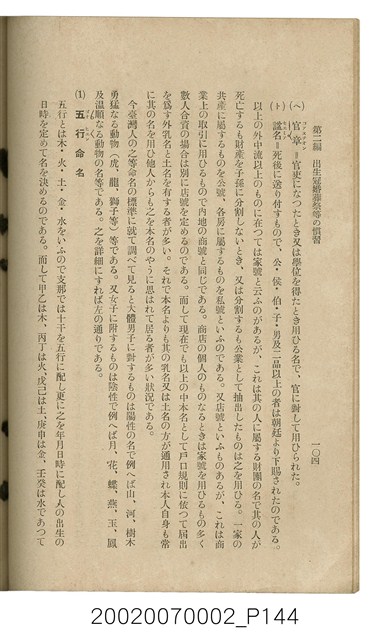 第二編 出生冠婚葬祭等の慣習
一〇四
(ヘ) 官章=官吏になつたとき又は學位を得たとき用ひる名で、官に對して用ひられた。
(ト) 諡名=死後に送り付すもので、公・侯・伯・子・男及二品以上の者は朝廷より下賜されたのである。
以上の外中流以上のものに在つては家號と云ふのがあるが、これは其の人に屬する財團の名で其の人が
死亡するも財產を子孫に分割しないとき、又は分割するも公業として抽出したものは之を用ひる。一家の
共產に屬するものを公號、各房に屬するものを私號といふのである。又店號といふものあるが、これは商
業上の取引に用ひるもので內地の商號と同じである。商店の個人のものなるときは家號を用ひるもの多く
數人合資の場合は別に店號を定めるのである。而して現在でも以上の中本名として戶口規則に依つて屆出
を爲す外乳名と土名を有する者が多い。それで本名よりも其の乳名又は土名の方が通用され本人自身も常
に其の名を用ひ他人からも之を本名のやうに思はれて居る者が多い狀況である。
今臺灣人の之等命名の標準に就て調べて見ると大體男子に對するものは陽性の名で例へば山、河、樹木
勇猛なる動物(虎、龍、獅子等)等である。又女子に附するものは陰性で例へば月、花、蝶、燕、玉、鳳
及溫順なる動物の名等である。之を詳細にすれば左の通りである。
(1) 五行命名
五行とは木・火・土・金・水をいふので支那では十干を五行に配し更に之を年月日時に配し人の出生の
日時を定めて名を決めるのである。而して甲乙は木、丙丁は火、戊己は土、庚申は金、壬癸は水であつて
20020070002_P144